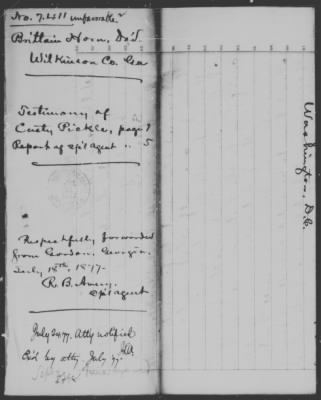 No. 7.411 unfavorable
Brittain Horn, De'd
Wilkinson Co. Ga
Testimony of
Custy Pickle, page 1
Report of sp'l agent " 5
Respectfully forwarded
from Gordon, Georgia,
July 18th, 1877-
R. B. Avery,
sp'l agent
July 24.77. Atty notified
by atty. July
Washington, D.C.